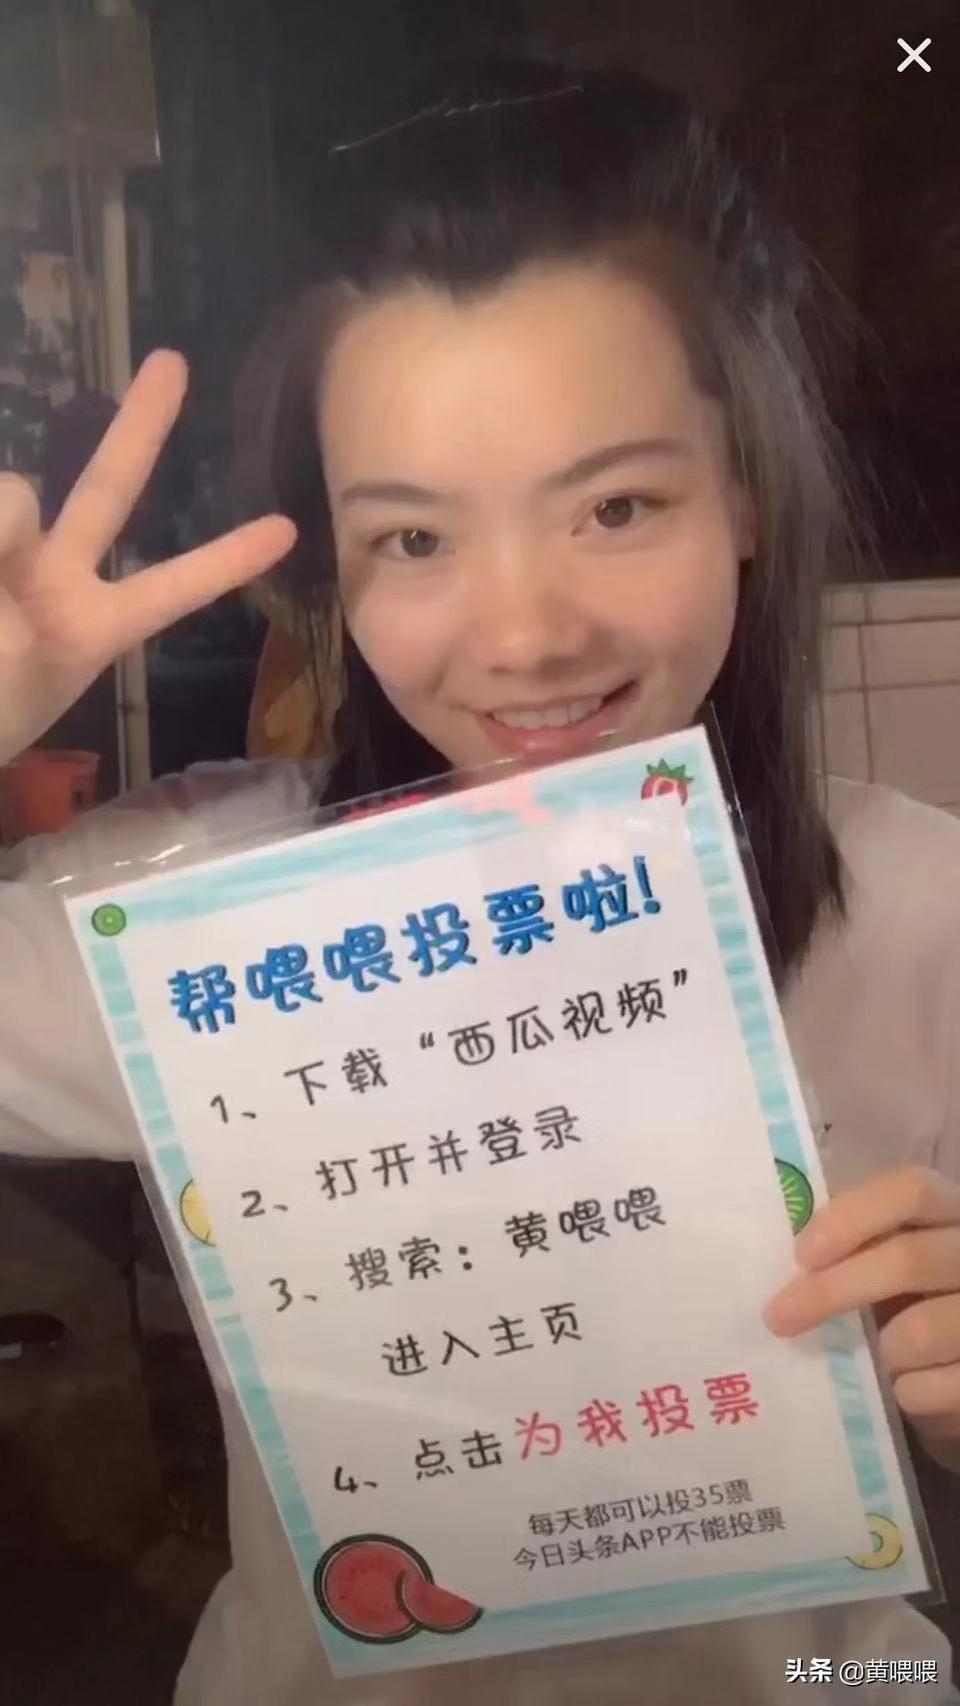 帮喂喂投票啦!
1、下载“西瓜视频”
2、打开并登录
3、搜索：黄喂喂
进入主页
4、点击为我投票
每天都可以投35票
今日头条APP不能投票
头条 @黄喂喂